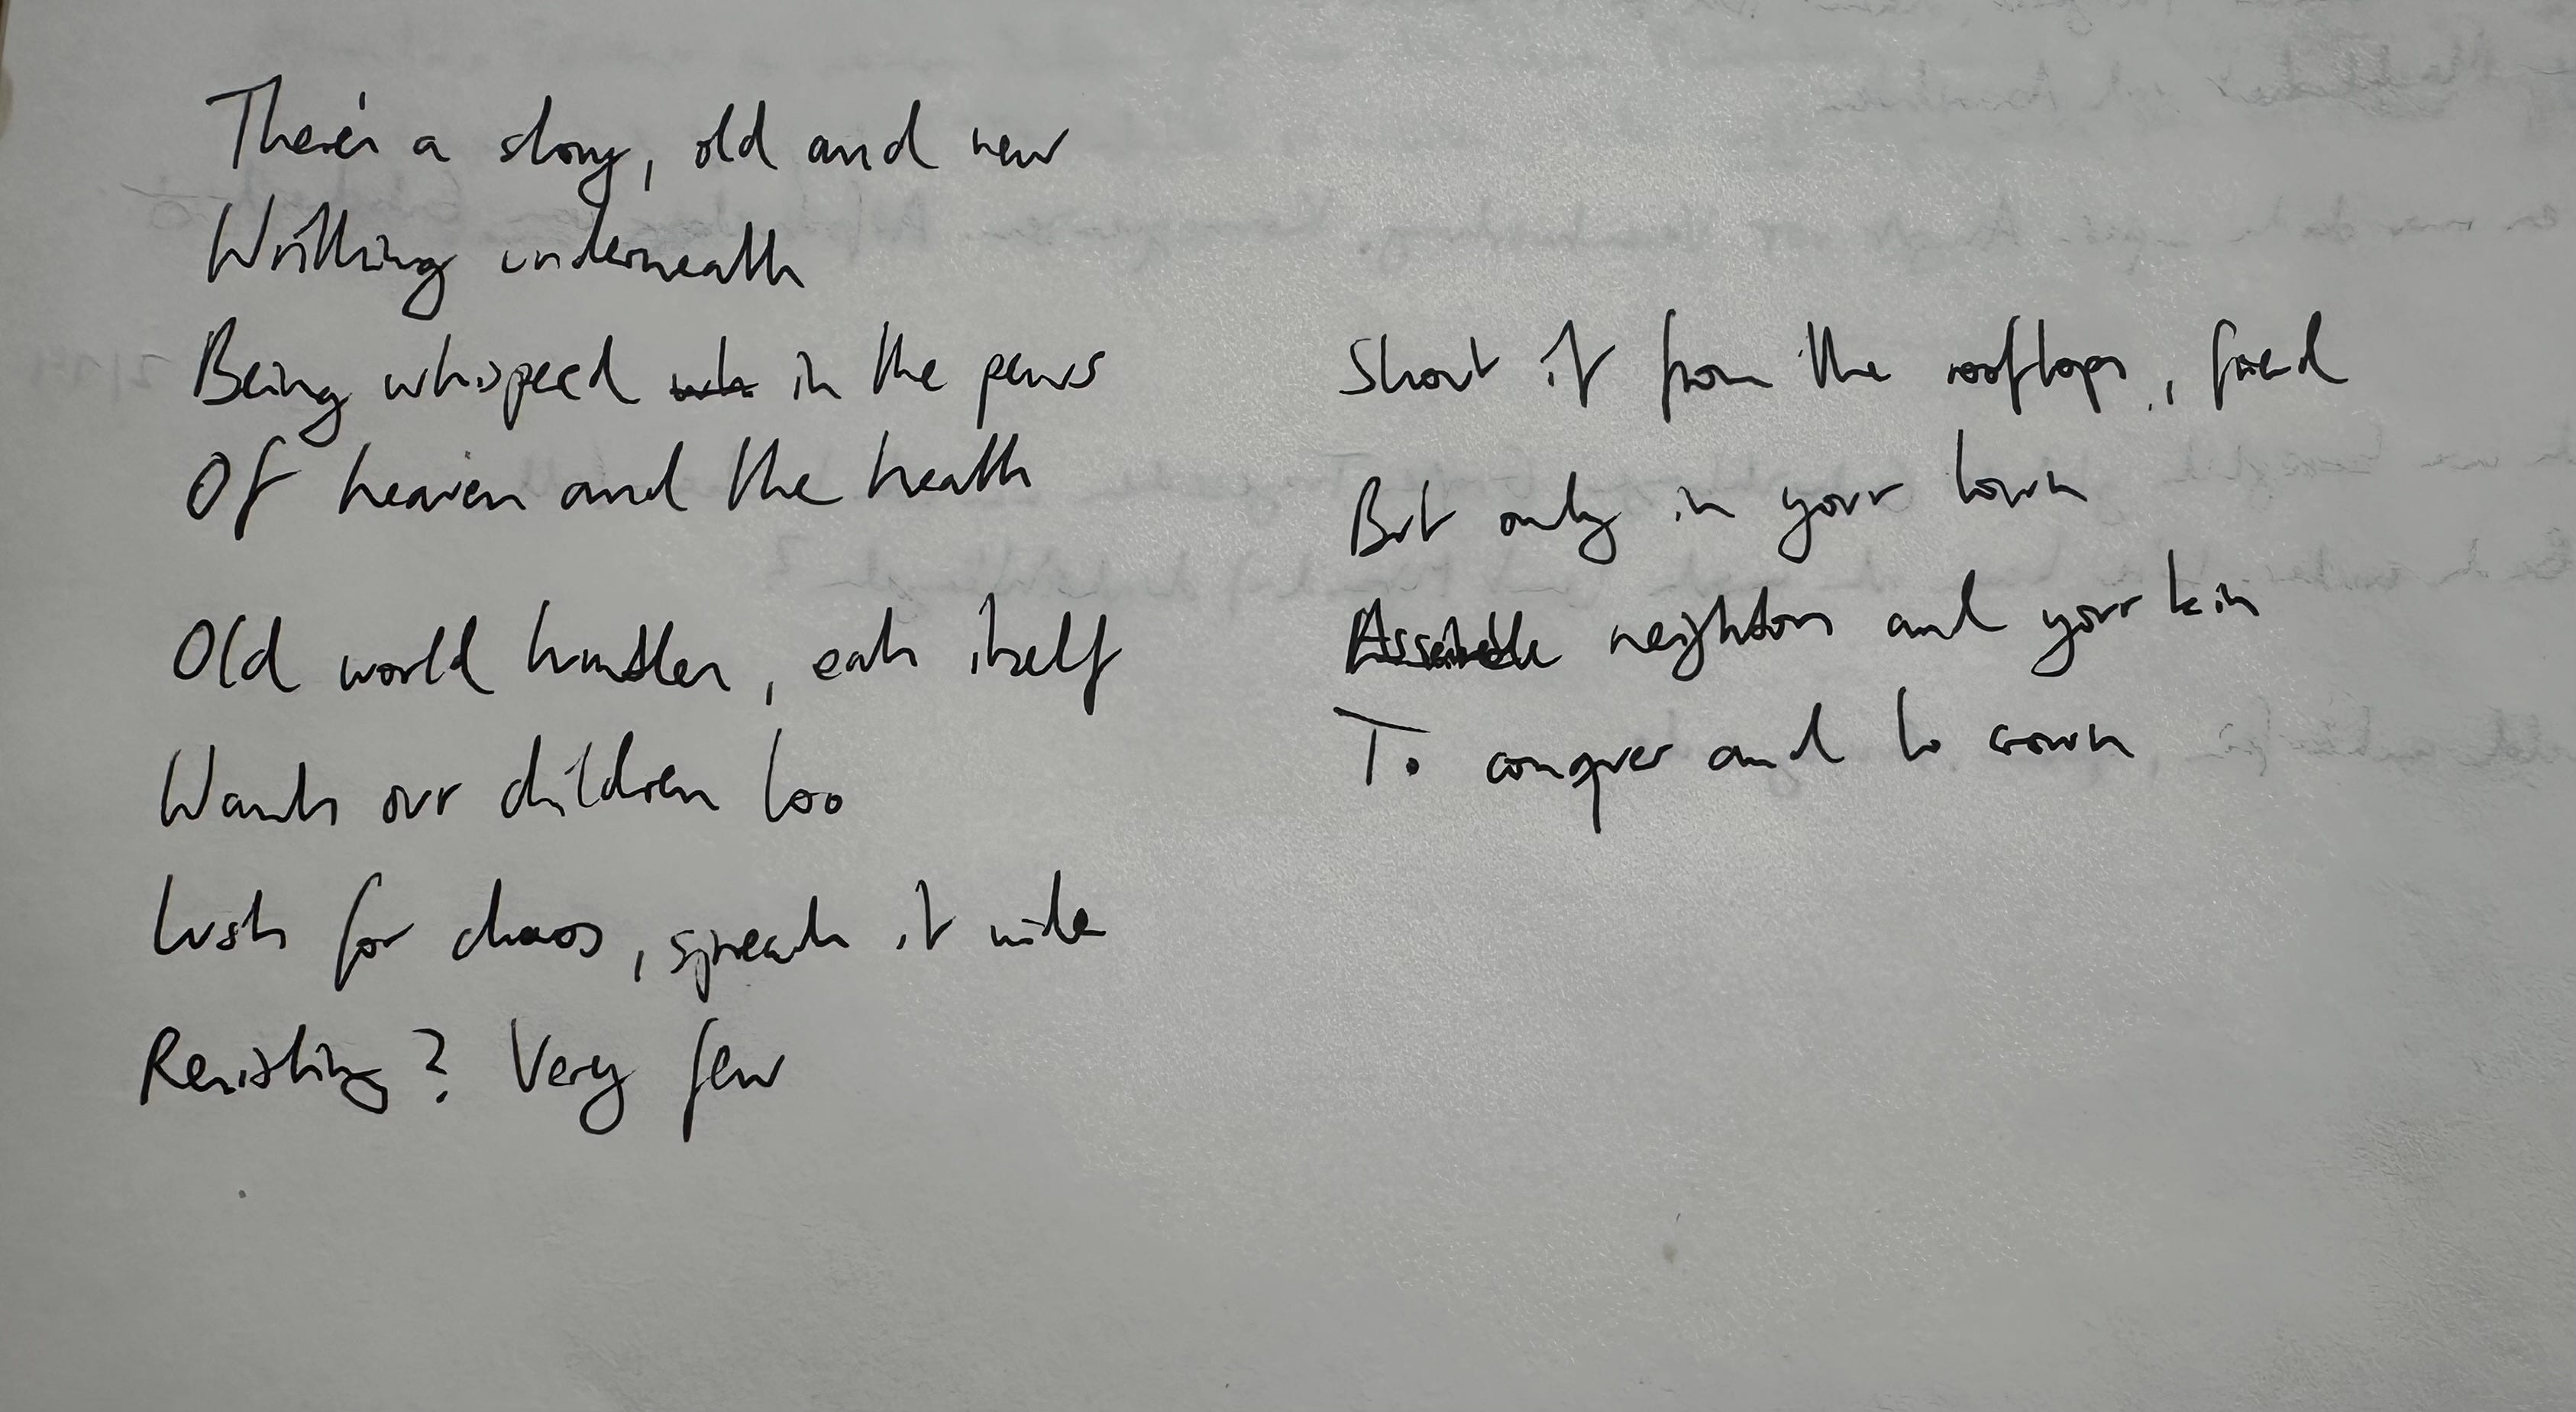 There's a story, old and new
Writhing underneath
Being whispered in the pews
Of heaven and the heath
Old world hustler, eats itself
Wants our children too
Lusts for chaos, spreads it wide
Resisting? Very few
Shout it from the rooftops, friend
But only in your town
Assemble neighbors and your kin
To conquer and to crown